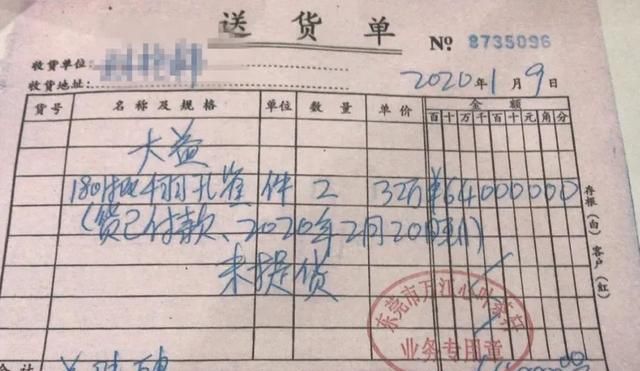 送货单
№ 8735096
收货单位:
收货地址:
2020年1月9日
货号 名称及规格 单位 数量 单价 金额
百十万千百十元角分
大益
1801批千羽孔雀 件 2 32万 ¥64000000
(货已付款、2020年2月20日
未提货
存根(白) 客户(红)
东莞市万江心
业务专用章
合计